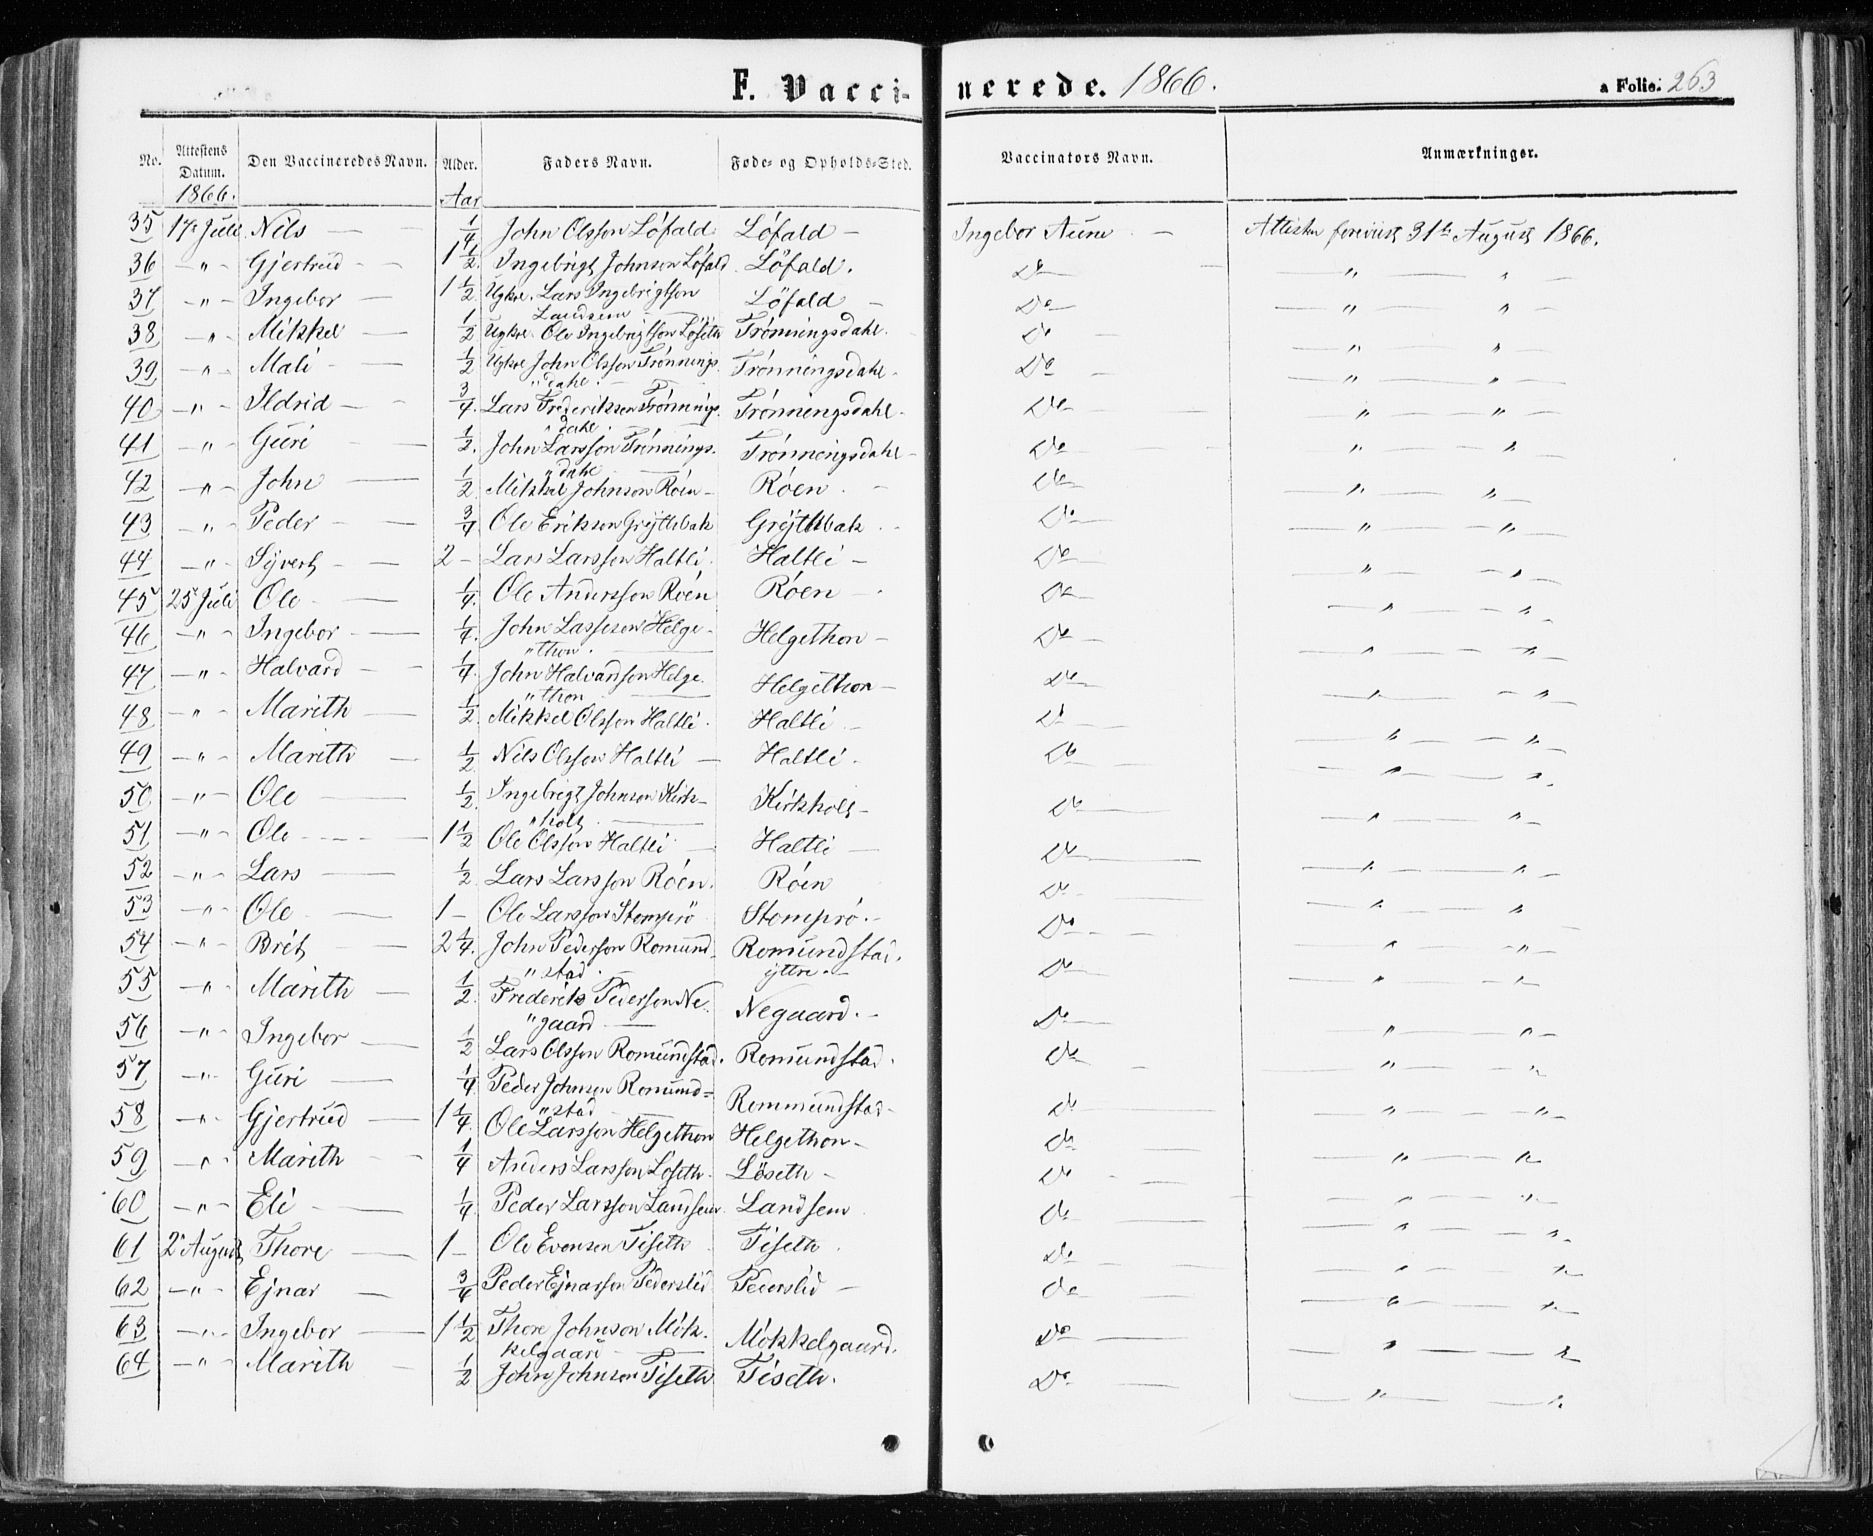 F. Vaccinerede. 1866. a Folie: 263
No. Attestens Datum. Den Vaccineredes Navn. Alder. Faders Navn. Føde- og Opholds-Sted. Vaccinators Navn. Anmærkninger.
1866. Aar
35 17 Juli Nils — 1/4 John Olsson Löfald Löfald — Ingebor Aune — Attesten foreviist 31te August 1866.
36 — " — Gjertrud — 1 1/2 Ingebrigt Johnsen Löfald Löfald. Do — " — "
37 — " — Ingebor — 1 1/2 Ugkrl. Lars Ingebrigtson Landsem — Löfald — Do — " — "
38 — " — Mikkel 1/2 Ugkrl. Ole Ingebrigtson Löseth Trönningsdahl. Do — " — "
39 — " — Mali — 1/2 Ugkrl John Olsson Trönnings "dahl. — Trönningsdahl. Do — " — "
40 — " — Ildrid — 3/4 Lars Frederiksen Trönnings "dahl. Trönningsdahl. Do — " — "
41 — " — Guri — 1/2 John Larsson Trönnings. "dahl — Trönningsdahl — Do — " — "
42 — " — John — 1/2 Mikkel Johnson Röen — Röen. — Do — " — "
43 — " — Peder — 3/4 Ole Erikson Gröttebak Gröttebak. Do — " — "
44 — " — Syvert — 2 — Lars Larsson Haltli. Haltli — Do — " — "
45 25 Juli Ole — 1/4 Ole Andersson Röen Röen — Do — " — "
46 — " — Ingebor — 1/4 John Lassesen Helge- "thon. — Helgethon — Do — " — "
47 — " — Halvard — 1/4 John Halvardson Helge. "thon — Helgethon — Do — " — "
48 — " — Marith — 1/2 Mikkel Olsson Haltli. Haltli — Do — " — "
49 — " — Marith — 1/2 Nils Olsson Haltli — Haltli. Do — " — "
50 — " — Ole — 1/2 Ingebrigt Johnson Kirk- "holt — Kirkholt — Do — " — "
51 — " — Ole — 1 1/2 Ole Olsson Haltli — Haltli — Do — " — "
52 — " — Lars — 1/2 Lars Larsson Röen. Röen Do — " — "
53 — " — Ole — 1 — Ole Larsson Stomprö Stomprö. — Do — " — "
54 — " — Brit — 2 1/4 John Pederson Romund- "stad. — Romundstad. yttre. — Do — " — "
55 — " — Marith — 1/2 Frederik Pederson Ne- "gaard — Negaard. — Do — " — "
56 — " — Ingebor — 1/2 Lars Olsson Romundstad. Romundstad. Do — " — "
57 — " — Guri — 1/4 Peder Johnson Romund= "stad — Rommundstad — Do — " — "
58 — " — Gjertrud — 1 1/4 Ole Larsson Helgethon Helgethon — Do — " — "
59 — " — Marith — 1/4 Anders Larsson Löseth. Löseth — Do — " — "
60 — " — Eli — 1/4 Peder Larsson Landsem Landsem Do — " — "
61 2 August Thore — 1 — Ole Evensen Tiseth Tiseth. Do — " — "
62 — " — Ejnar — 3/4 Peder Ejnarson Pederslid Pederslid — Do — " — "
63 — " — Ingebor — 1 1/2 Thore Johnson Mök. kelgaard — Mökkelgaard. Do — " — "
64 — " — Marith — 1/2 John Johnson Tiseth Tiseth. Do — " — "